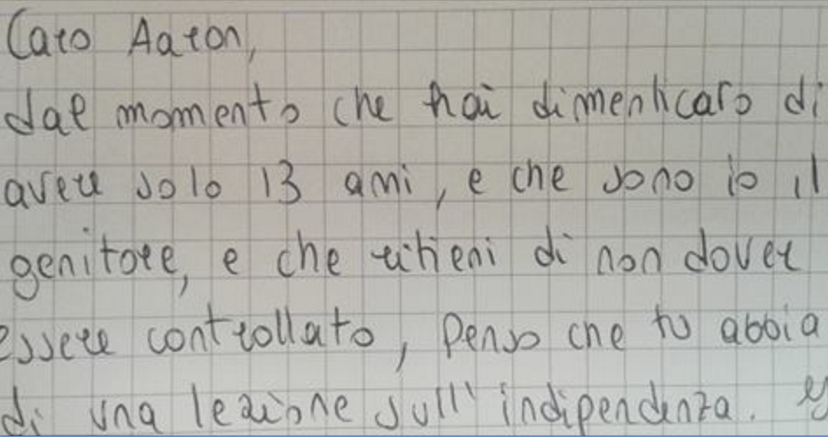 Caro Aaron,
dal momento che hai dimenticato di
avere solo 13 anni, e che sono io il
genitore, e che ritieni di non dover
essere controllato, penso che tu abbia
di una lezione sull'indipendenza.